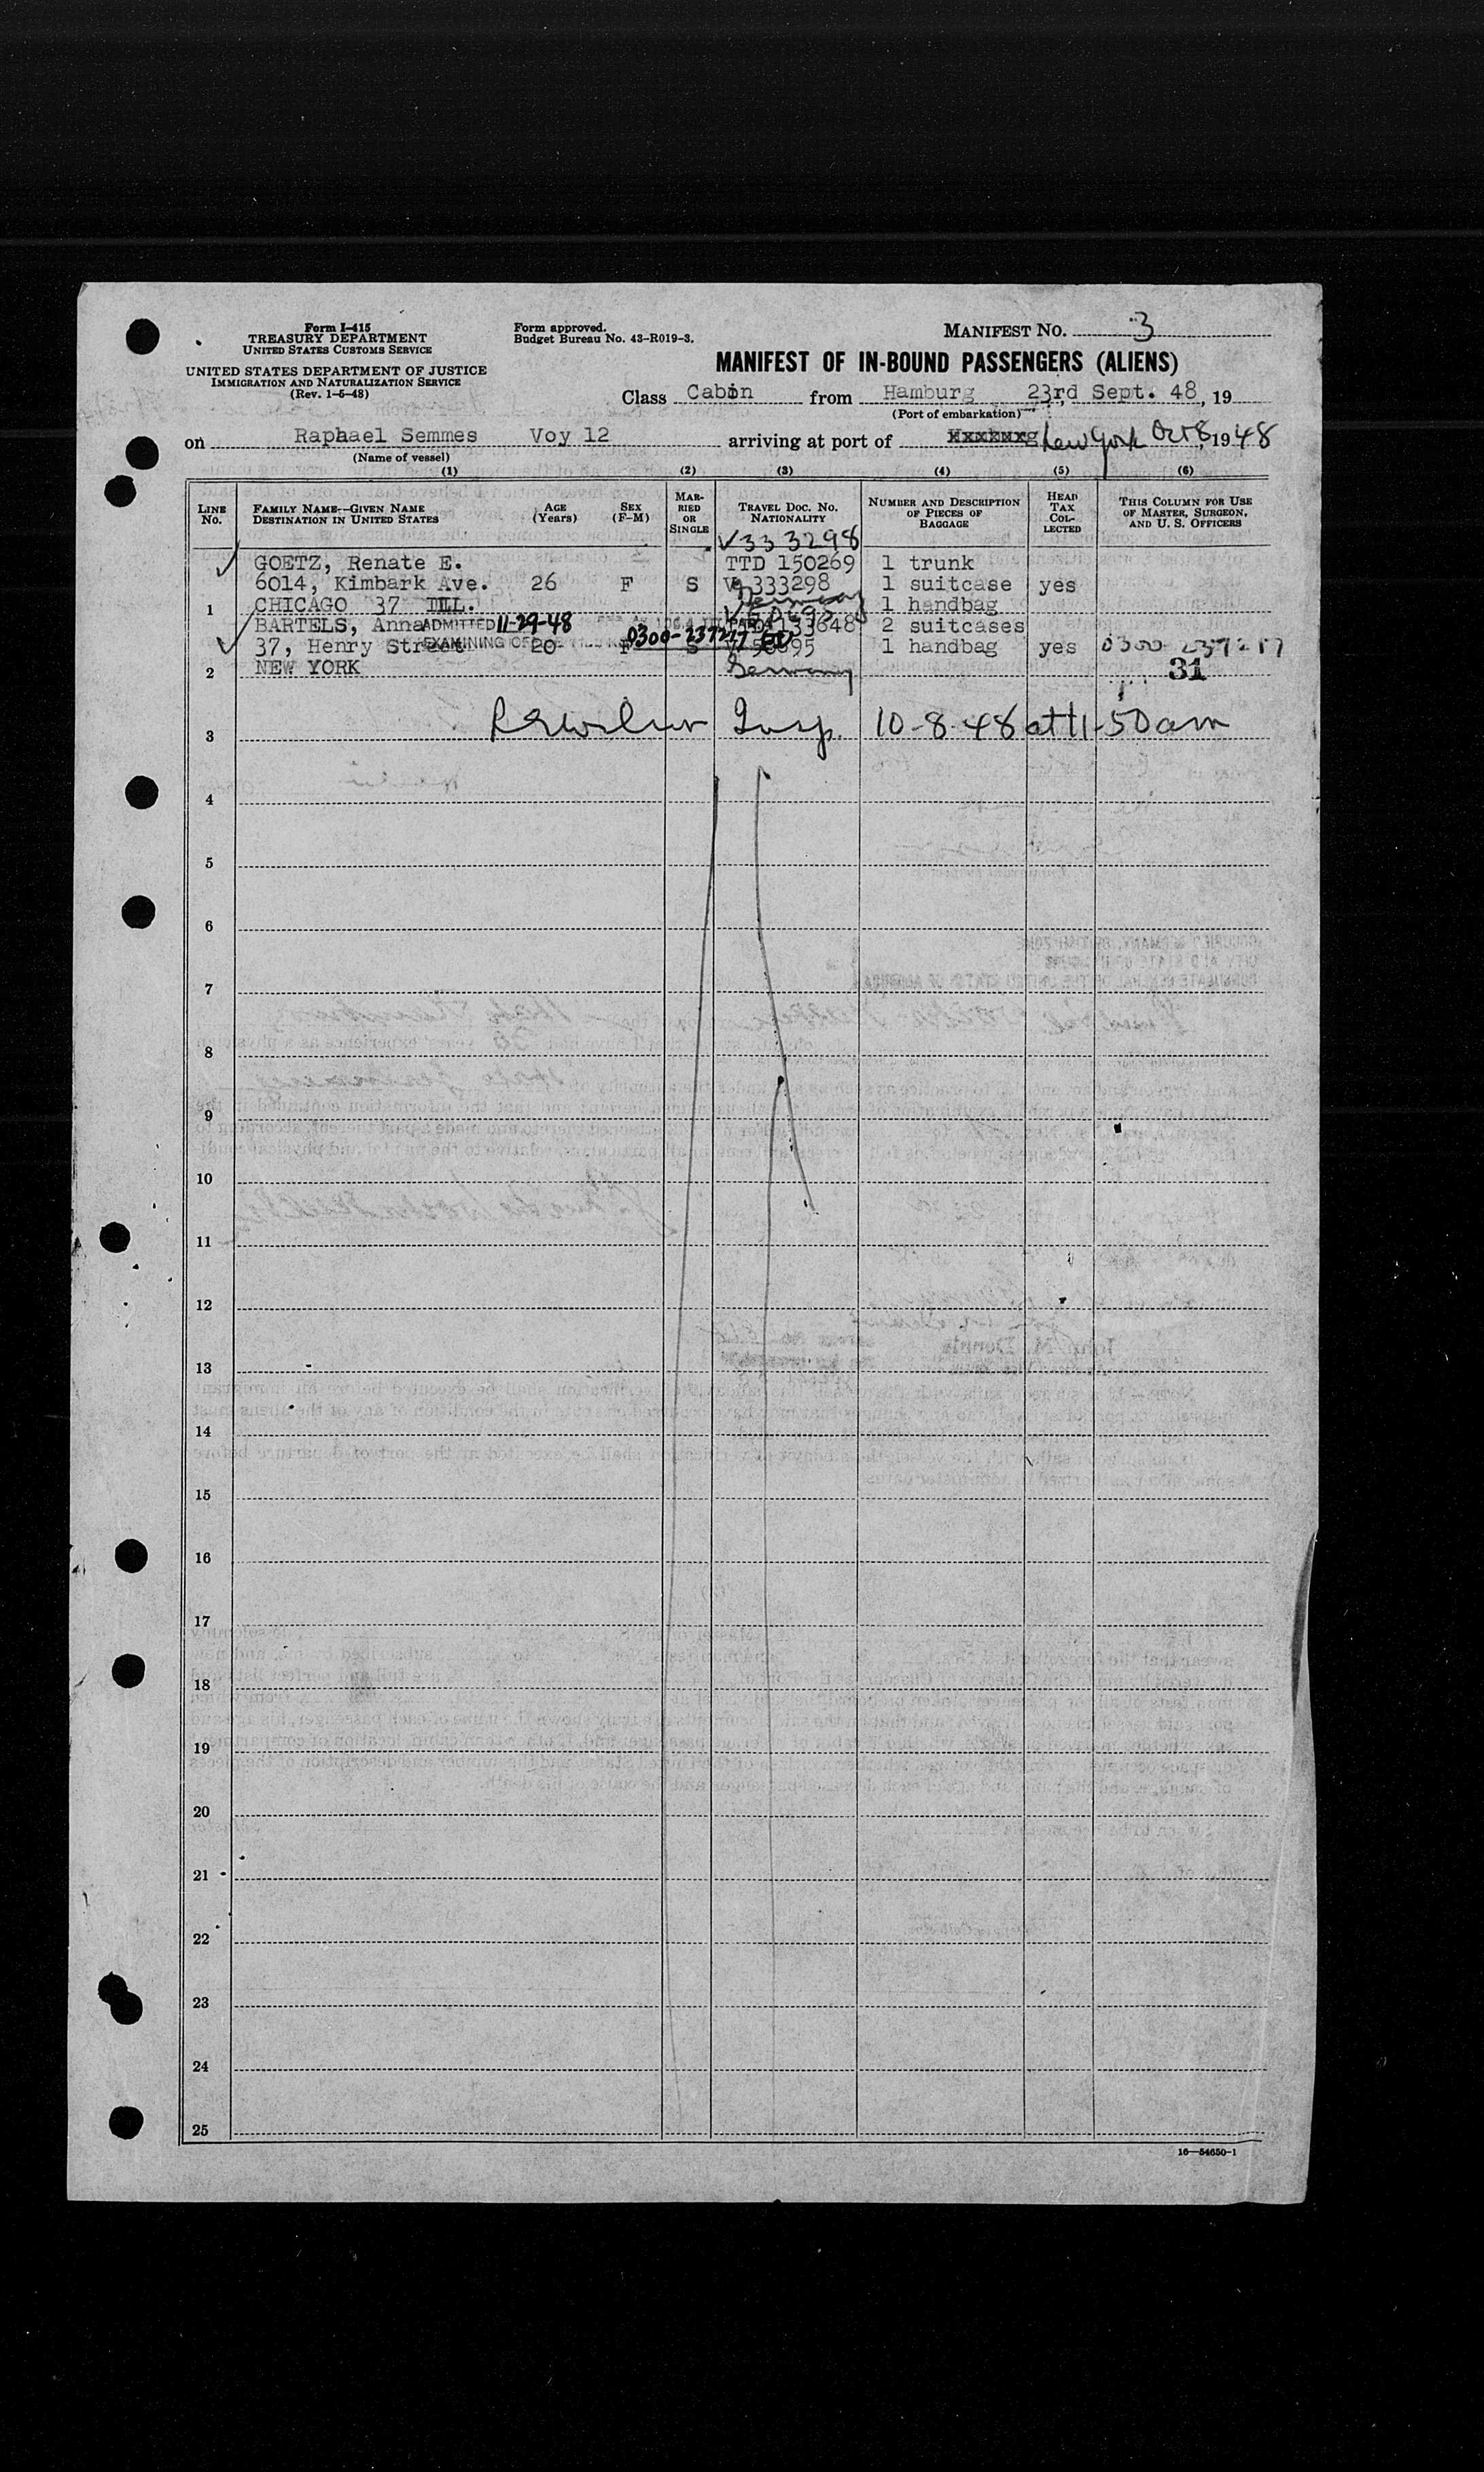 Form I-415
TREASURY DEPARTMENT
UNITED STATES CUSTOMS SERVICE
UNITED STATES DEPARTMENT OF JUSTICE
IMMIGRATION AND NATURALIZATION SERVICE
(Rev. 1-5-48)
Form approved.
Budget Bureau No. 43-R019-3.
MANIFEST NO. 3
MANIFEST OF IN-BOUND PASSENGERS (ALIENS)
Class Cabin from Hamburg 23rd Sept. 48, 19
(Port of embarkation)
on Raphael Semmes Voy 12 arriving at port of New York Oct 8, 1948
(Name of vessel)
(1) (2) (3) (4) (5) (6)
LINE No. FAMILY NAME—GIVEN NAME DESTINATION IN UNITED STATES AGE (Years) SEX (F-M) MARRIED OR SINGLE TRAVEL DOC. NO. NATIONALITY NUMBER AND DESCRIPTION OF PIECES OF BAGGAGE HEAD TAX COLLECTED THIS COLUMN FOR USE OF MASTER, SURGEON, AND U. S. OFFICERS
V333298
GOETZ, Renate E. TTD 150269 1 trunk
6014, Kimbark Ave. 26 F S 333298 1 suitcase yes
1 CHICAGO 37 ILL. Germany 1 handbag
BARTELS, Anna ADMITTED 11-29-48 133648 2 suitcases
37, Henry Street EXAMINING 20 F 0300-237217 S 1 handbag yes 0300-237217
2 NEW YORK Germany 31
3 Insp. 10-8-48 at 11-50 am
4
5
6
7
8
9
10
11
12
13
14
15
16
17
18
19
20
21
22
23
24
25
16—54650-1